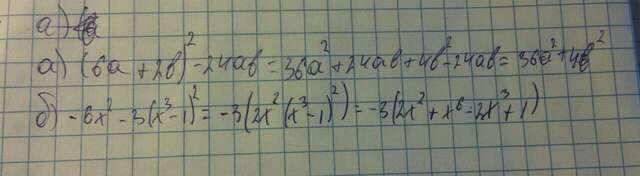 а)
а) (6a + 2b)² - 24ab = 36a² + 24ab + 4b² - 24ab = 36a² + 4b²
б) -6x² - 3(x³ - 1)² = -3(2x² (x³ - 1)²) = -3(2x² + x⁶ - 2x³ + 1)